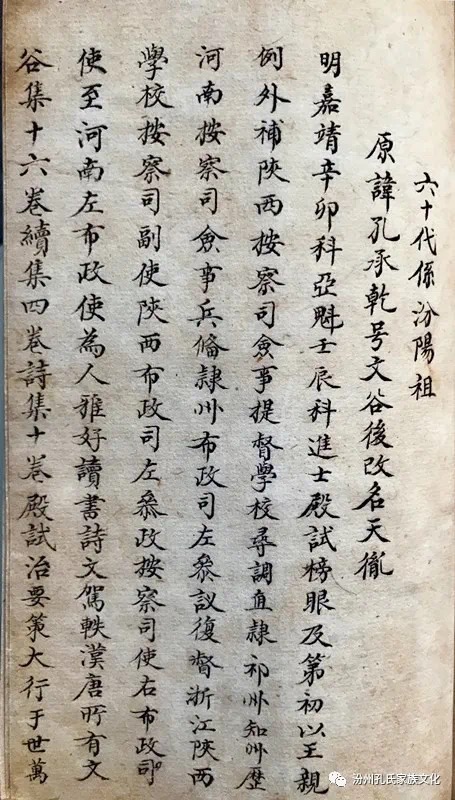 六十代係汾陽祖
原諱孔承乾号文谷後改名天胤
明嘉靖辛卯科亞魁壬辰科進士殿試榜眼及第初以王親
例外補陝西按察司僉事提督學校尋調直隷祁州知州歷
河南按察司僉事兵俻隷州布政司左叅議復督浙江陝西
學校按察司副使陝西布政司左叅政按察司使右布政司
使至河南左布政使為人雅好讀書詩文駕軼漢唐所有文
谷集十六卷續集四卷詩集十卷殿試治要策大行于世萬
汾州孔氏家族文化